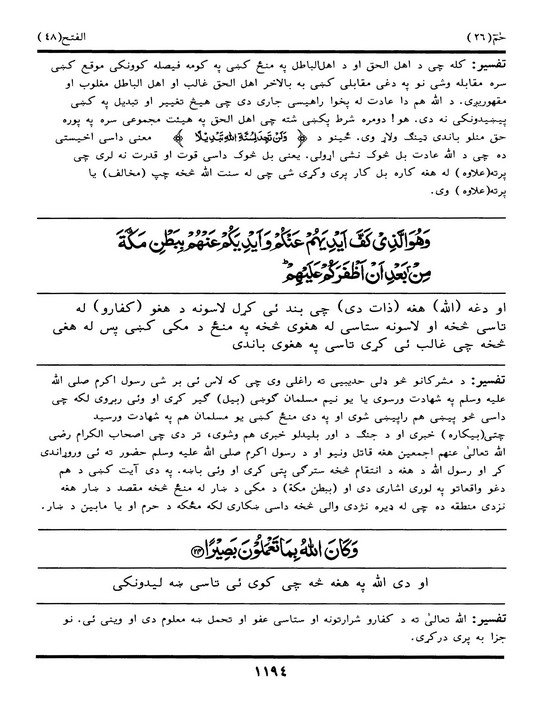 حٰمٓ(٢٦)
الفتح(٤٨)
تفسیر: کله چی د اهل الحق او د اهل‌الباطل په منځ کښی په کومه فیصله کوونکی موقع کښی
سره مقابله وشی نو په دغی مقابلی کښی به بالاخر اهل الحق غالب او اهل الباطل مغلوب او
مقهوریږی. د الله هم دا عادت له پخوا راهیسی جاری دی چی هیڅ تغییر او تبدیل په کښی
پیښیدونکی نه دی. هو! دومره شرط پکښی شته چی اهل الحق په هیئت مجموعی سره په پوره
حق منلو باندی ټینګ ولاړ وی. ځینو د ﴿ وَلَنْ تَجِدَ لِسُنَّةِ اللهِ تَبْدِيْلًا ﴾ معنی داسی اخیستی
ده چی د الله عادت بل څوک نشی اړولی. یعنی بل څوک داسی قوت او قدرت نه لری چی
پرته(علاوه) له هغه کاره بل کار پری وکړی شی چی له سنت الله څخه چپ (مخالف) یا
پرته(علاوه) وی.
وَهُوَ الَّذِيْ كَفَّ اَيْدِيَهُمْ عَنْكُمْ وَاَيْدِيَكُمْ عَنْهُمْ بِبَطْنِ مَكَّةَ
مِنْ بَعْدِ اَنْ اَظْفَرَكُمْ عَلَيْهِمْ ؕ
او دغه (الله) هغه (ذات دی) چی بند ئی کړل لاسونه د هغو (کفارو) له
تاسی څخه او لاسونه ستاسی له هغوی څخه په منځ د مکی کښی پس له هغی
څخه چی غالب ئی کړی تاسی په هغوی باندی
تفسیر: د مشرکانو څو ډلی حدیبیی ته راغلی وی چی که لاس ئی بر شی رسول اکرم صلی الله
علیه وسلم په شهادت ورسوی یا یو نیم مسلمان ګوښی (بیل) ګیر کړی او وئی ربړوی لکه چی
داسی څو پیښی هم راپیښی شوی او په دی منځ کښی یو مسلمان هم په شهادت ورسید
چتی(بیکاره) خبری او د جنګ د اور بلیدلو خبری هم وشوی، تر دی چی اصحاب الکرام رضی
الله تعالیٰ عنهم اجمعین هغه قاتل ونیو او د رسول اکرم صلی الله علیه وسلم حضور ته ئی وروړاندی
کړ او رسول الله د هغه د انتقام څخه سترګی پټی کړی او وئی باښه. په دی آیت کښی د هم
دغو واقعاتو په لوری اشاری دی او (ببطن مکة) د مکی د ښار له منځ څخه مقصد د ښار هغه
نزدی منطقه ده چی له ډیره نژدی والی څخه داسی ښکاری لکه مځکه د حرم او یا مابین د ښار.
وَكَانَ اللهُ بِمَا تَعْمَلُوْنَ بَصِيْرًا ﴿٢٤﴾
او دی الله په هغه څه چی کوی ئی تاسی ښه لیدونکی
تفسیر: الله تعالیٰ ته د کفارو شرارتونه او ستاسی عفو او تحمل ښه معلوم دی او وینی ئی. نو
جزا به پری درکړی.
١١٩٤